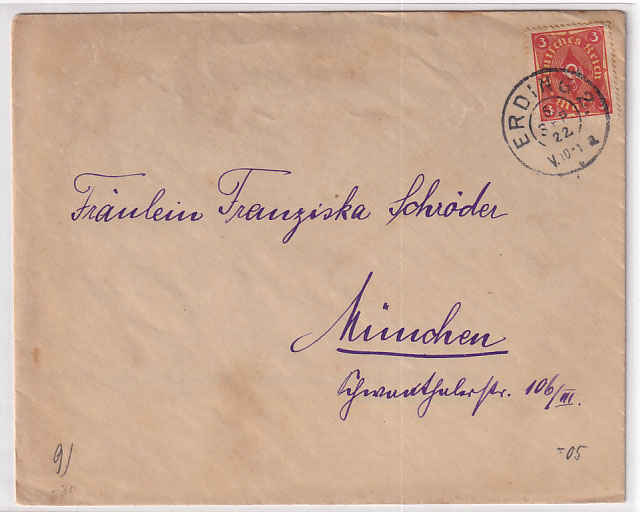 3 3
Deutsches Reich
ERDING 2
SEP
22
V.10-1 a
Fräulein Franziska Schröder
München
Schwanthalerstr. 106/III.
9)
-.30
-.05